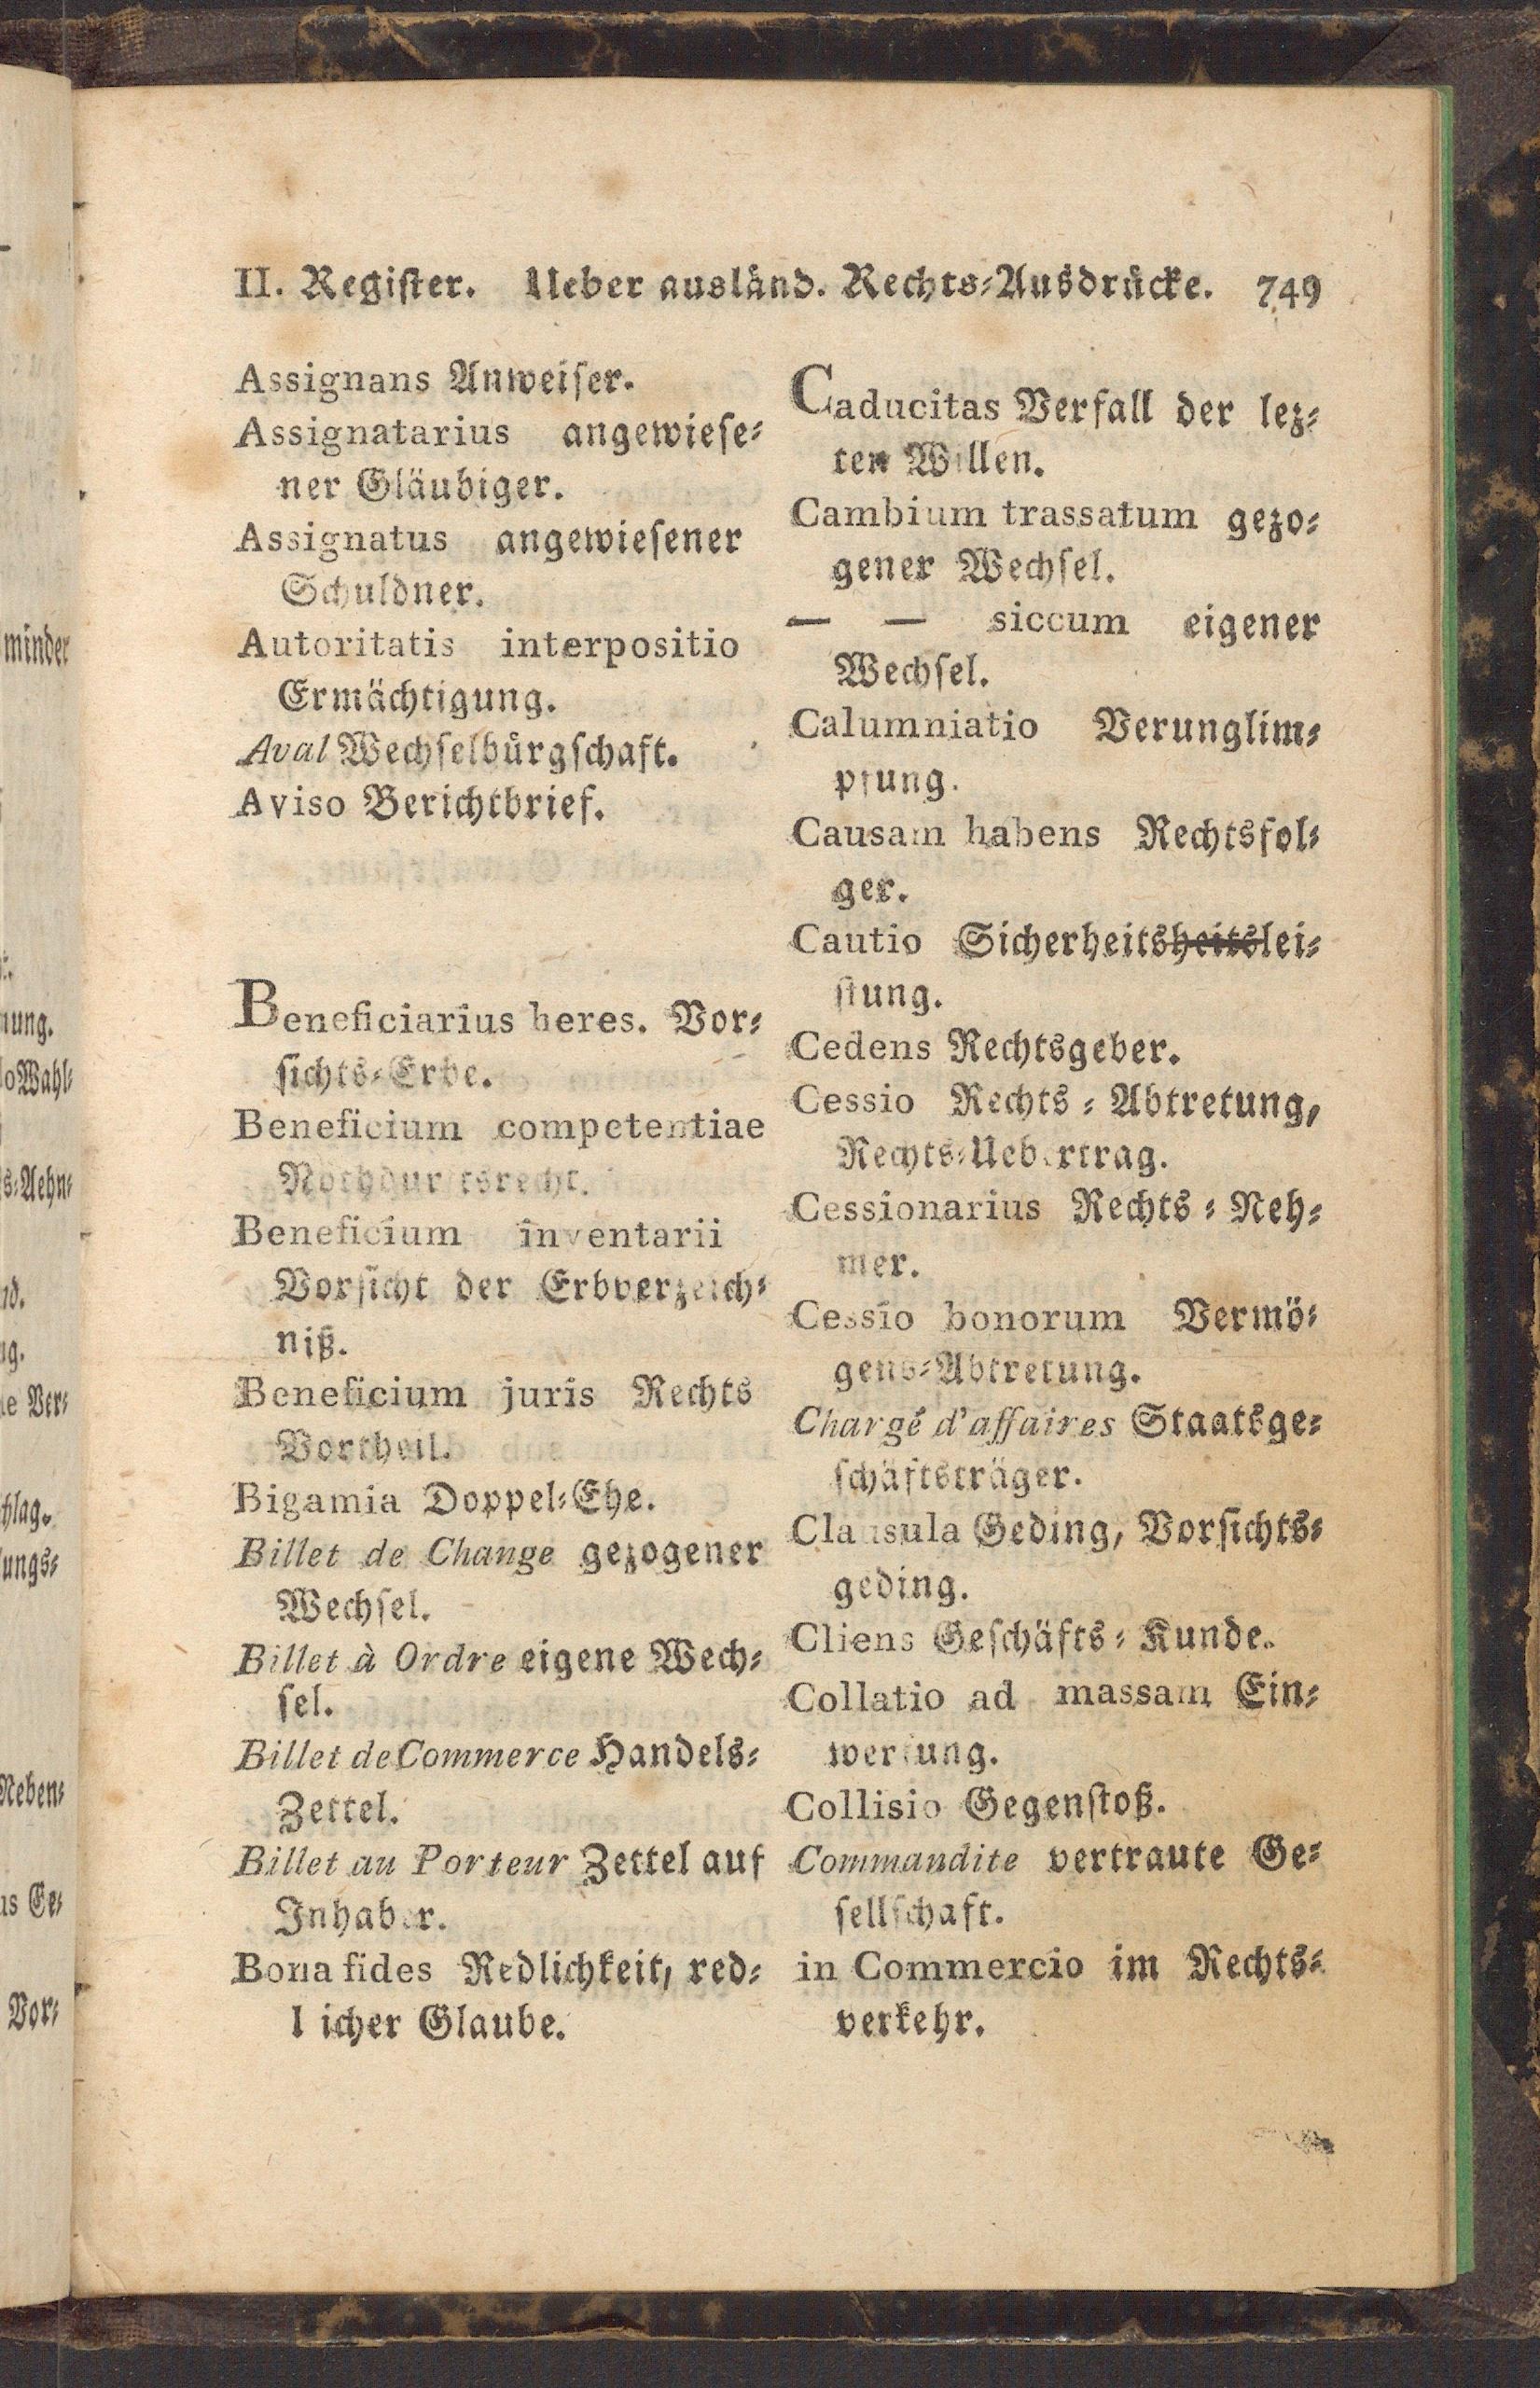 II. Register. Ueber ausländ. Rechts-Ausdrücke. 749
Assignans Anweiser.
Assignatarius angewiese-
ner Gläubiger.
Assignatus angewiesener
Schuldner.
Autoritatis interpositio
Ermächtigung.
Aval Wechselbürgschaft.
Aviso Berichtbrief.
Beneficiarius heres. Vor-
sichts-Erbe.
Beneficium competentiae
Nothdurftsrecht.
Beneficium inventarii
Vorsicht der Erbverzeich-
niß.
Beneficium juris Rechts
Vortheil.
Bigamia Doppel-Ehe.
Billet de Change gezogener
Wechsel.
Billet à Ordre eigene Wech-
sel.
Billet de Commerce Handels-
Zettel.
Billet au Porteur Zettel auf
Inhaber.
Bona fides Redlichkeit, red-
l icher Glaube.
Caducitas Verfall der lez-
ten Willen.
Cambium trassatum gezo-
gener Wechsel.
— — siccum eigener
Wechsel.
Calumniatio Verunglim-
pfung.
Causam habens Rechtsfol-
ger.
Cautio Sicherheitsheitslei-
stung.
Cedens Rechtsgeber.
Cessio Rechts-Abtretung,
Rechts-Uebertrag.
Cessionarius Rechts-Neh-
mer.
Cessio bonorum Vermö-
gens-Abtretung.
Chargé d'affaires Staatsge-
schäftsträger.
Clausula Geding, Vorsichts-
geding.
Cliens Geschäfts-Kunde.
Collatio ad massam Ein-
werfung.
Collisio Gegenstoß.
Commandite vertraute Ge-
sellschaft.
in Commercio im Rechts-
verkehr.
minder
nung.
Wahl-
s-Aehn-
Ver-
ungs-
Neben-
Ge-
Vor-